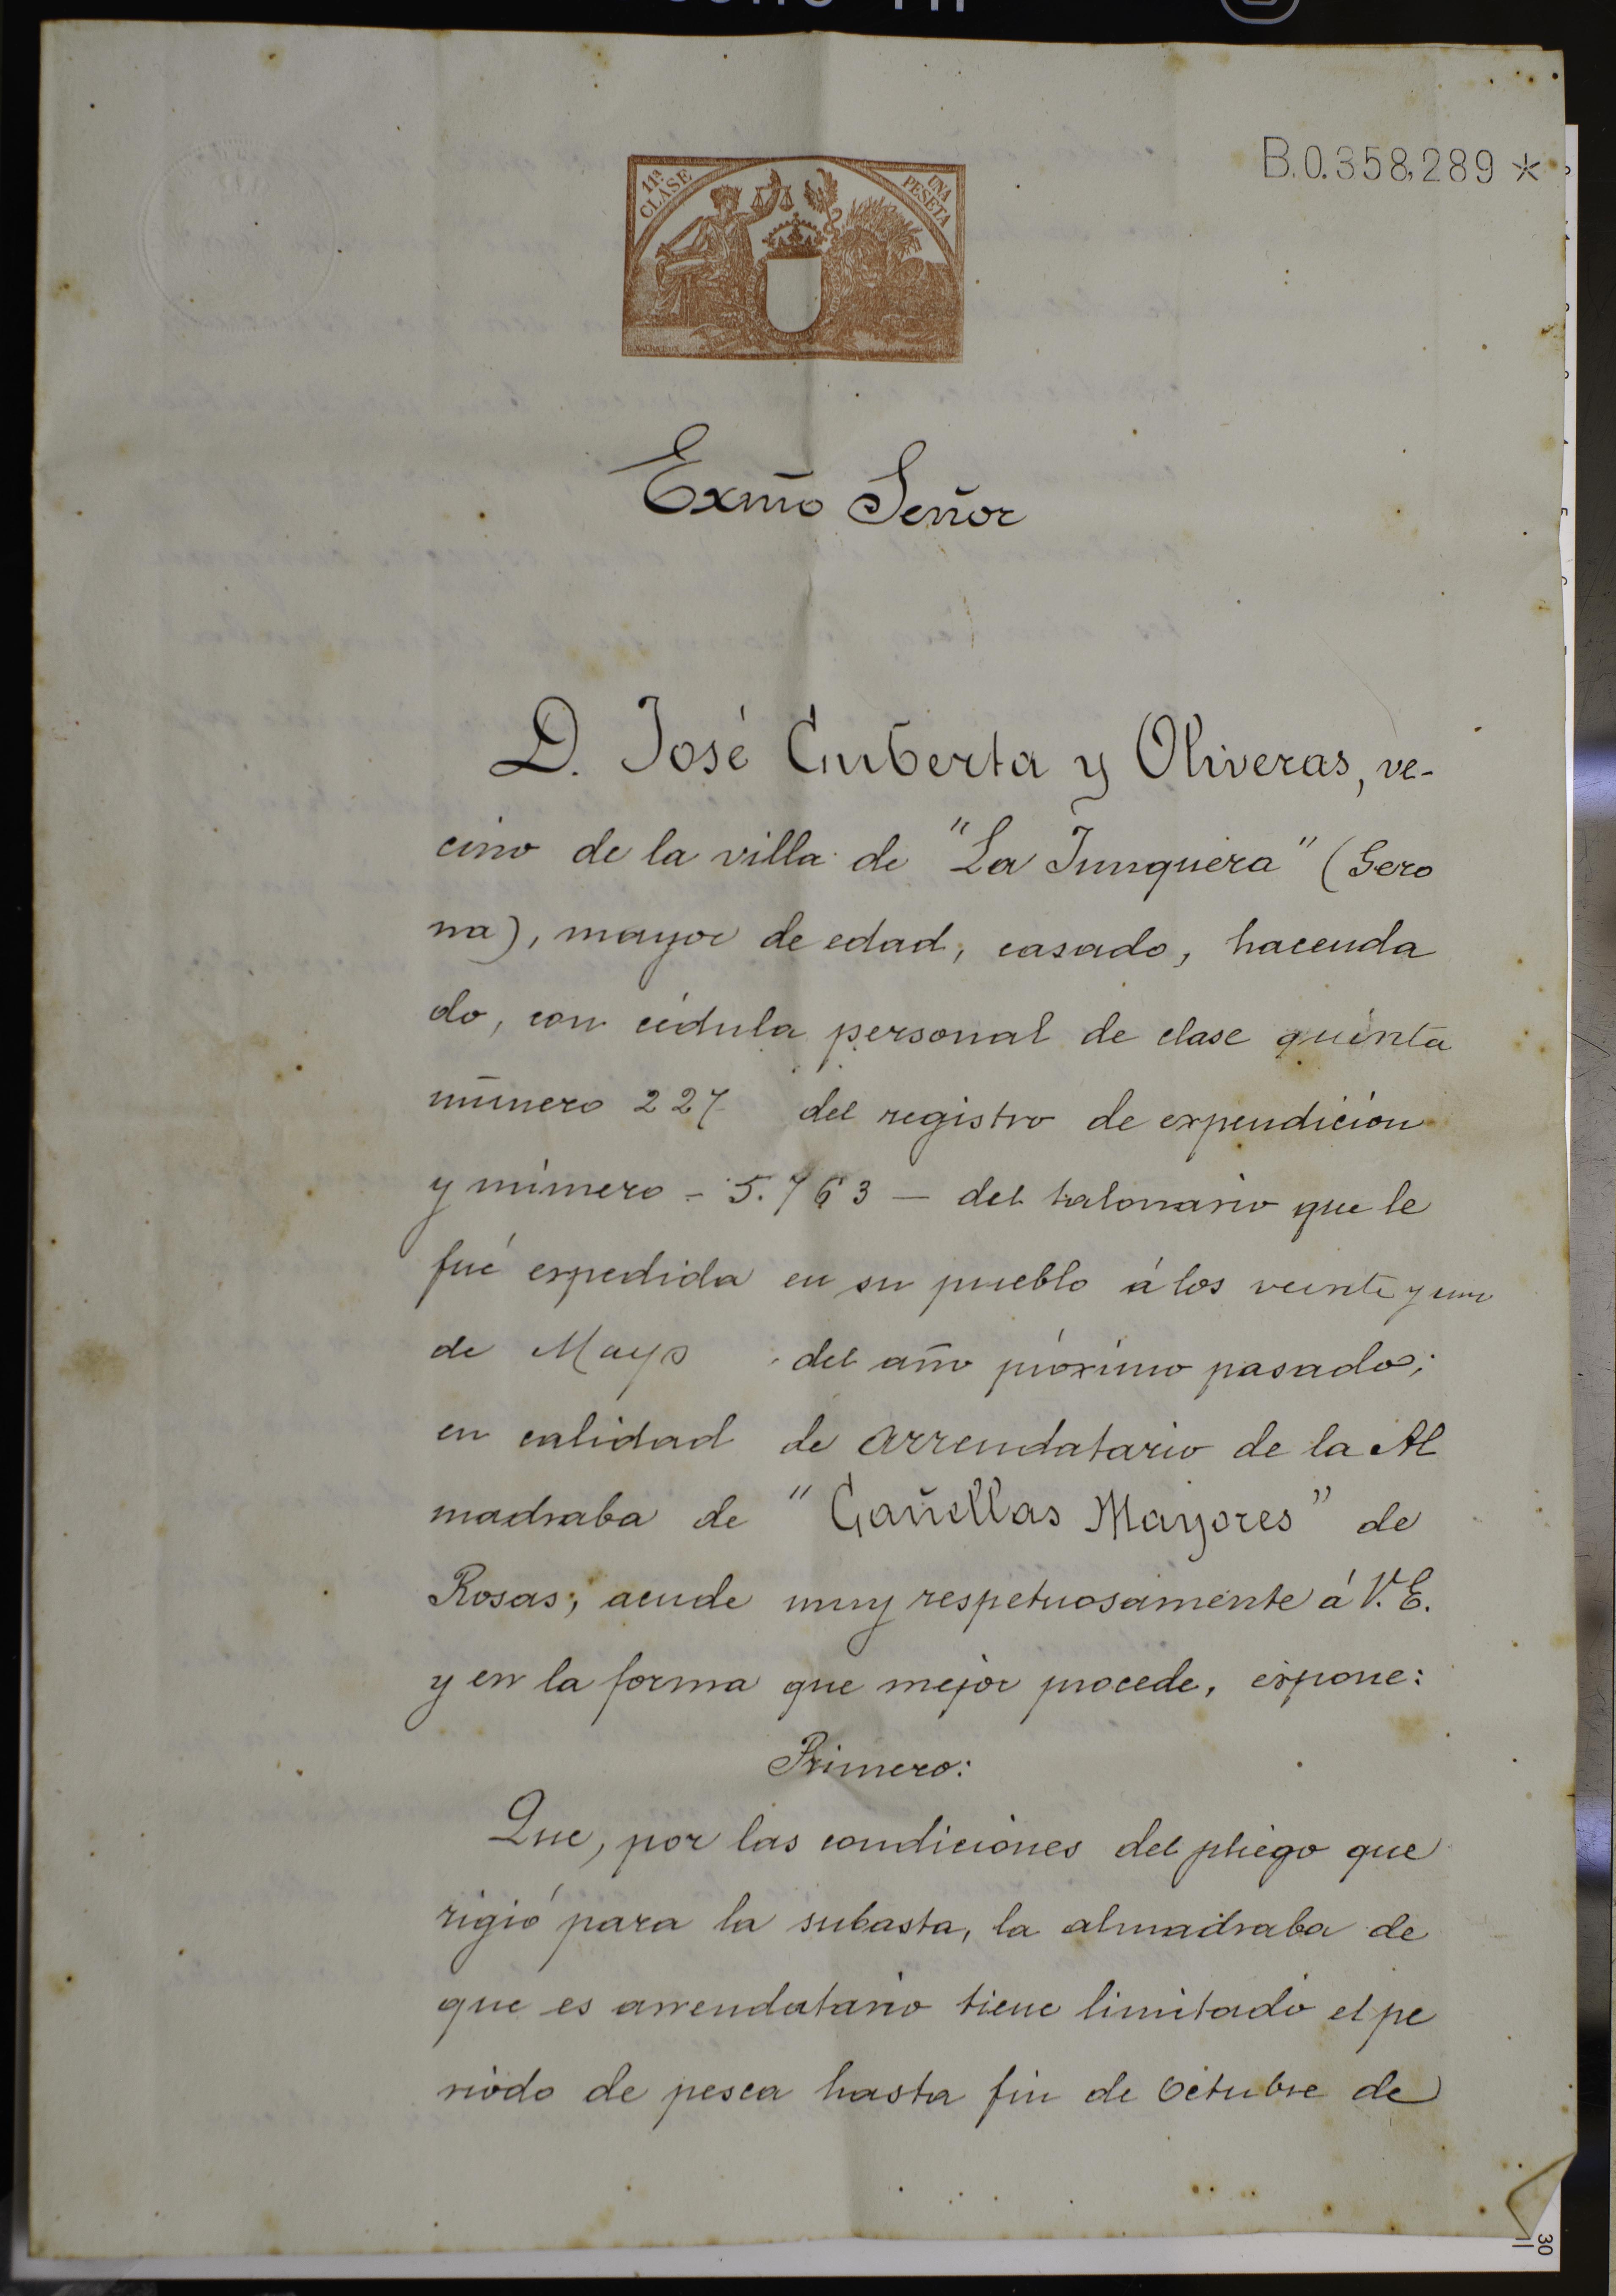 B.0.358,289 *
11ª CLASE
UNA PESETA
Exmo Señor
D. José Guberta y Oliveras, ve-
cino de la villa de "La Junquera" (Gero
na), mayor de edad, casado, hacenda
do, con cédula personal de clase quinta
número 227 del registro de expendición
y número - 5.763 - del talonario que le
fué expedida en su pueblo á los veinte y uno
de Mayo del año próximo pasado;
en calidad de arrendatario de la Al
madraba de "Cañellas Mayores" de
Rosas; acude muy respetuosamente á V. E.
y en la forma que mejor procede, expone:
Primero:
Que, por las condiciones del pliego que
rigió para la subasta, la almadraba de
que es arrendatario tiene limitado el pe
riodo de pesca hasta fin de Octubre de
30